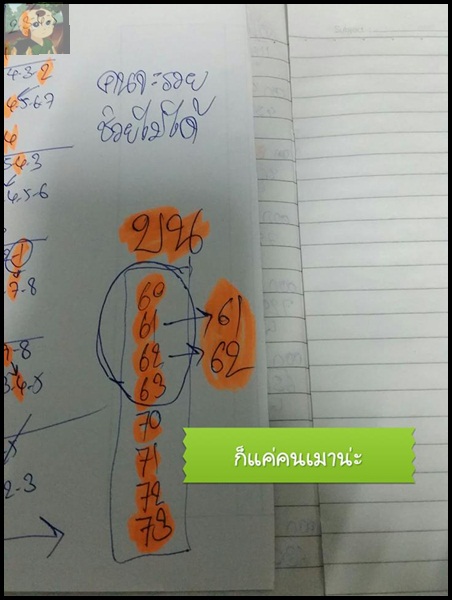 4-3-2
4-5-6-7
4
5-4-3
4-5-6
1
7-8
7-8
3-4-5
2-3
คนจะรวย
ช่วยไม่ได้
บน
60
61
62
63
70
71
72
73
61
62
ก็แค่คนเมาน่ะ